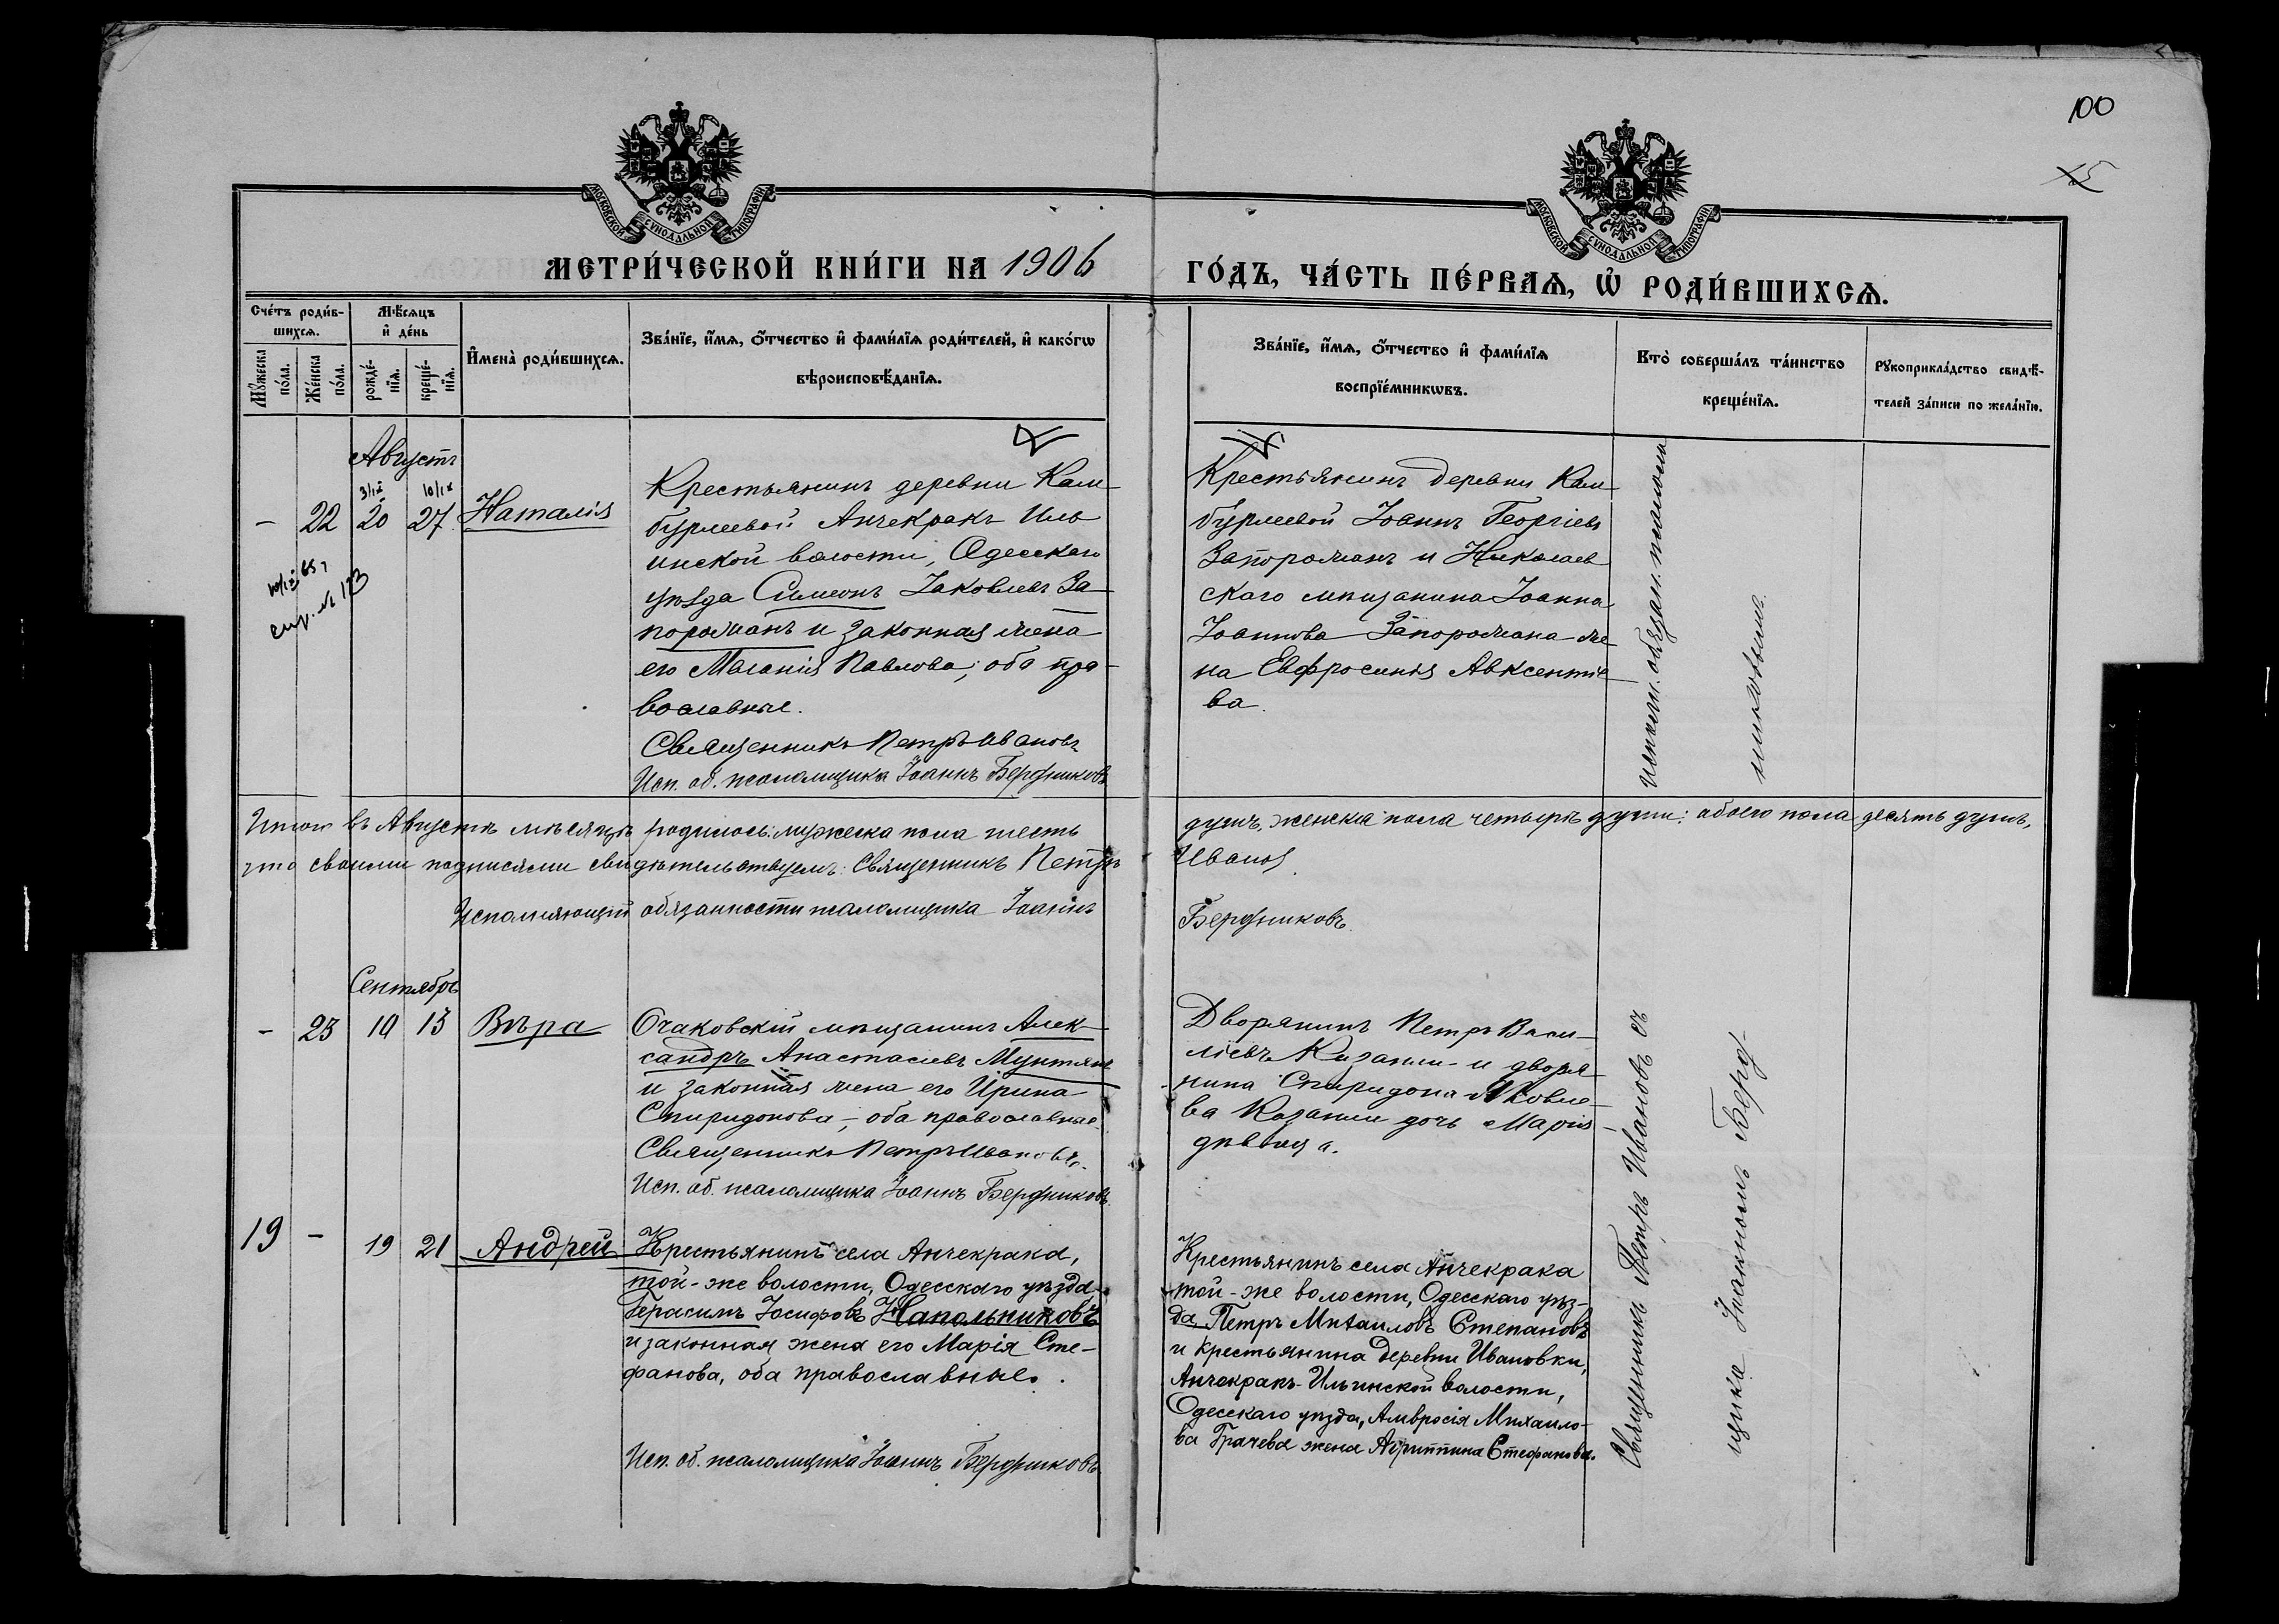 100
15
МОСКОВСКОЙ СУНОДАЛЬНОЙ ТИПОГРАФІИ
МОСКОВСКОЙ СУНОДАЛЬНОЙ ТИПОГРАФІИ
МЕТРИ́ЧЕСКОЙ КНИ́ГИ НА 1906
ГО́ДЪ, ЧА́СТЬ ПЕ́РВАѦ, Ѡ҆ РОДИ́ВШИХСѦ.
Сче́тъ роди́в-
шихсѧ.
Мꙋ́жеска
по́ла.
Же́нска
по́ла.
Мѣ́сѧцъ
и҆ де́нь
рожде́-
нїѧ.
креще́-
нїѧ.
И҆мена̀ роди́вшихсѧ.
Зва́нїе, и҆́мѧ, ѻ҆́тчество и҆ фами́лїѧ роди́телей, и҆ како́гѡ
вѣроисповѣ́данїѧ.
Зва́нїе, и҆́мѧ, ѻ҆́тчество и҆ фами́лїѧ
воспрїе́мникѡвъ.
Кто̀ соверша́лъ та́инство
креще́нїѧ.
Рꙋкоприкла́дство свидѣ́-
телей за́писи по жела́нїю.
Августъ
3/IX 10/IX
– 22 20 27 Наталія
Крестьянинъ деревни Кам-
бурлеевой Анчекракъ Иль-
инской волости, Одесскаго
уѣзда Симеонъ Іаковлевъ За-
порожанъ и законная жена
его Маланія Павлова; оба пра-
вославные.
Священникъ Петръ Ивановъ
Исп. об. псаломщика Іоаннъ Бердниковъ
Крестьянинъ деревни Кам-
бурлеевой Іоаннъ Георгіевъ
Запорожанъ и Николаев-
скаго мѣщанина Іоанна
Іоаннова Запорожана же-
на Евфросинія Авксентіе-
ва.
Итого въ Августѣ мѣсяцѣ родилось: мужеска пола шесть душъ, женска пола четыре души: обоего пола десять душъ,
что своими подписями свидѣтельствуемъ: Священникъ Петръ Ивановъ
Исполняющій обязанности псаломщика Іоаннъ Бердниковъ.
Сентябрь
– 23 10 13 Вѣра
Очаковскій мѣщанинъ Алек-
сандръ Анастасіевъ Мунтянъ
и законная жена его Ирина
Спиридонова, оба православные.
Священникъ Петръ Ивановъ.
Исп. об. псаломщика Іоаннъ Бердниковъ
Дворянинъ Петръ Васи-
ліевъ Казанли и дворя-
нина Спиридона Яковле-
ва Казанли дочь Марія
дѣвица.
19 – 19 21 Андрей
Крестьянинъ села Анчекрака,
той-же волости, Одесскаго уѣзда
Герасимъ Іосифовъ Напольниковъ
и законная жена его Марія Сте-
фанова, оба православные.
Исп. об. псаломщика Іоаннъ Бердниковъ
Крестьянинъ села Анчекрака
той-же волости, Одесскаго уѣз-
да, Петръ Михаиловъ Степановъ
и крестьянина деревни Ивановки,
Анчекракъ-Ильинской волости,
Одесскаго уѣзда, Амвросія Михаило-
ва Грачева жена Агриппина Стефанова.
Священникъ Петръ Ивановъ съ
щика Іоанномъ Берд-
никовымъ.